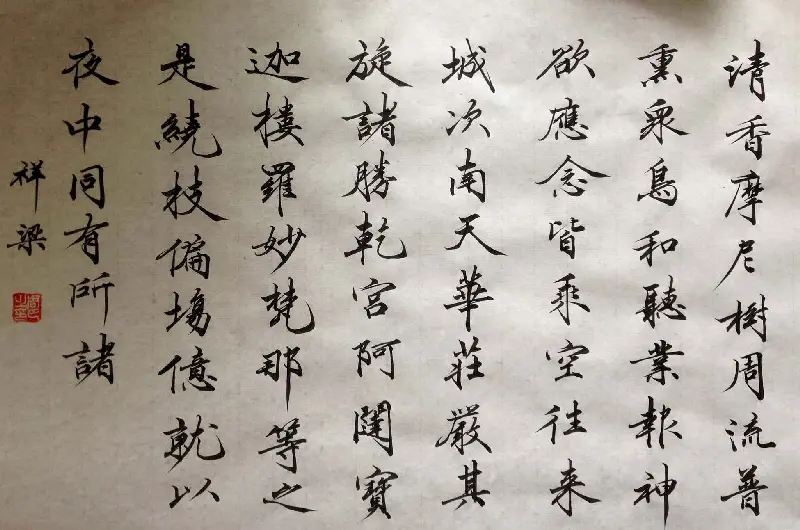 請香摩尼樹周流普
熏眾鳥和聽業報神
欲應念皆乘空往来
城次南天華莊嚴其
旋諸勝乾宮阿闥寶
迦樓羅妙梵那等之
是繞枝偏場億就以
夜中同有所諸
祥梁